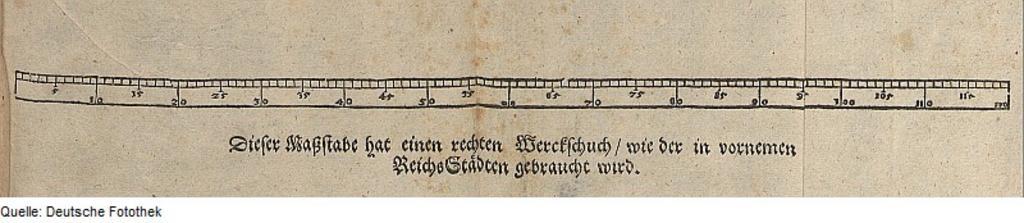 5 15 25 35 45 55 65 75 85 95 105 115
10 20 30 40 50 60 70 80 90 100 110 120
Dieser Maßstabe hat einen rechten Werckschuch / wie der in vornemen
ReichsStädten gebraucht wird.
Quelle: Deutsche Fotothek